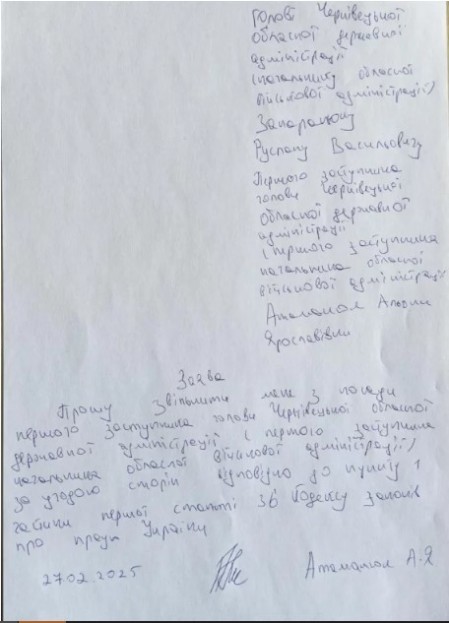 Голові Чернівецької
обласної державної
адміністрації
(начальнику обласної
військової адміністрації)
Запаранюку
Руслану Васильовичу
Першого заступника
голови Чернівецької
обласної державної
адміністрації
(першого заступника
начальника обласної
військової адміністрації
Атаманюк Альони
Ярославівни
Заява
Прошу звільнити мене з посади
першого заступника голови Чернівецької обласної
державної адміністрації (першого заступника
начальника обласної військової адміністрації)
за угодою сторін відповідно до пункту 1
частини першої статті 36 Кодексу законів
про працю України
27.02.2025 Атаманюк А.Я